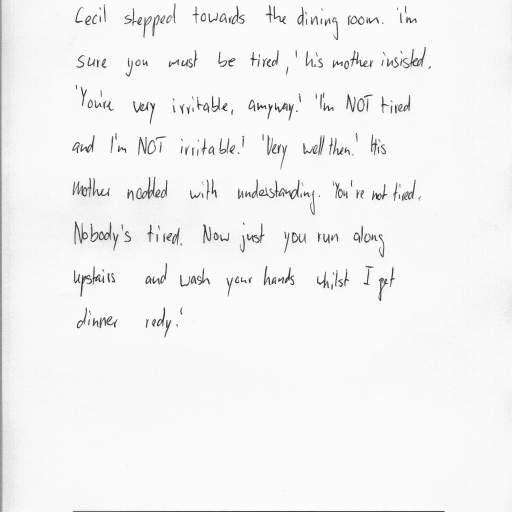 Cecil stepped towards the dining room. 'i'm
sure you must be tired,' his mother insisted.
'You're very irritable, anyway.' 'I'm NOT tired
and I'm NOT irritable.' 'Very well then.' His
mother nodded with understanding. 'You're not tired.
Nobody's tired. Now just you run along
upstairs and wash your hands whilst I get
dinner redy.'